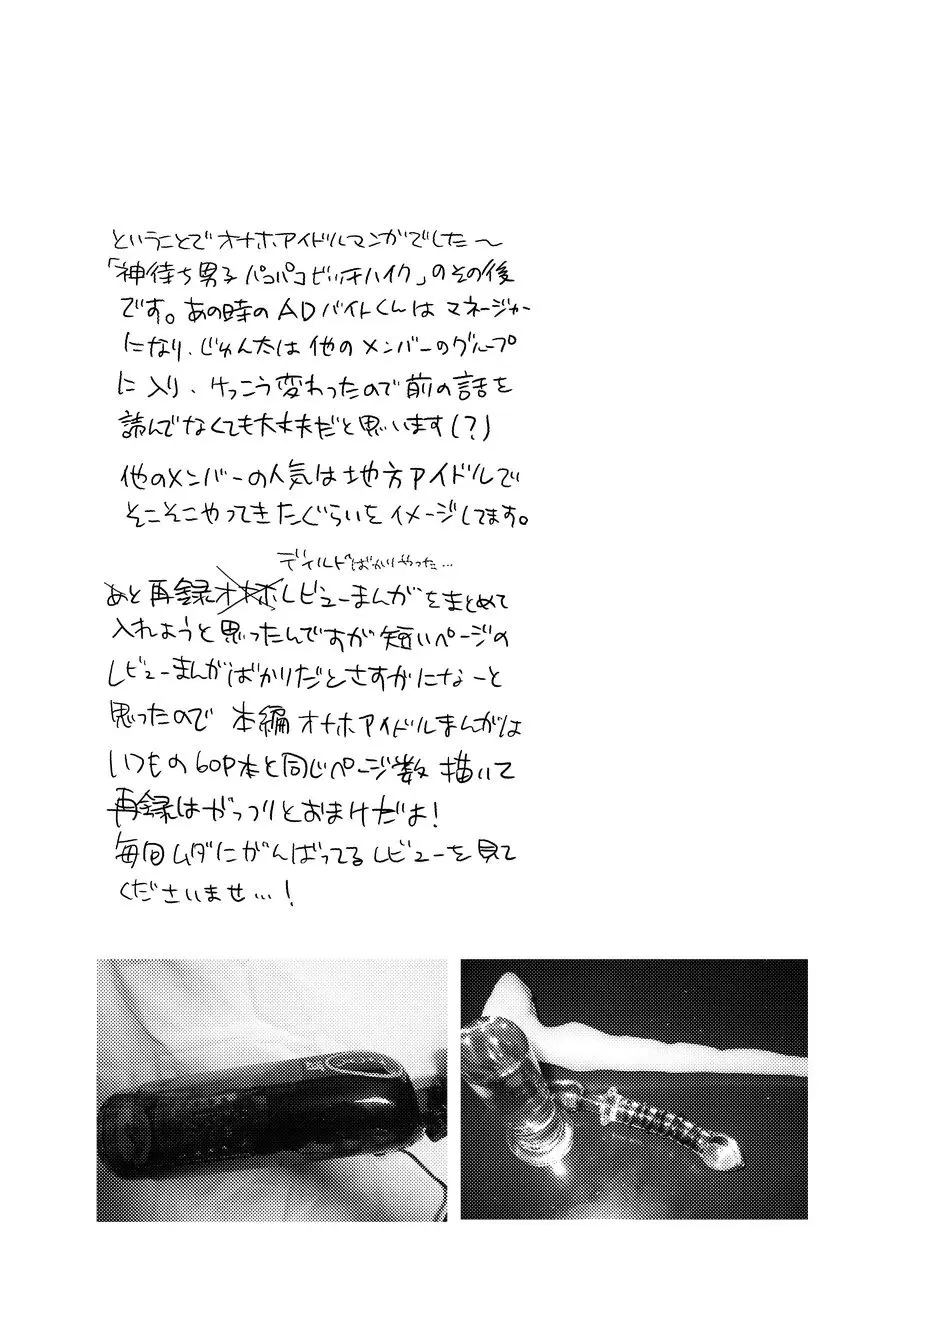 ということでオナホアイドルマンガでした〜
「神待ち男子パコパコビッチハイク」のその後
です。あの時のADバイトくんはマネージャー
になり、じゅん太は他のメンバーのグループ
に入り、けっこう変わったので前の話を
読んでなくても大丈夫だと思います(?)
他のメンバーの人気は地方アイドルで
そこそこやってきたぐらいをイメージしてます。
ディルドばかりやった…
あと再録オナホレビューまんがをまとめて
入れようと思ったんですが短いページの
レビューまんがばかりだとさすがになーと
思ったので本編オナホアイドルまんがは
いつもの60P本と同じページ数描いて
再録はがっつりとおまけだよ!
毎回ムダにがんばってるレビューを見て
くださいませ…!